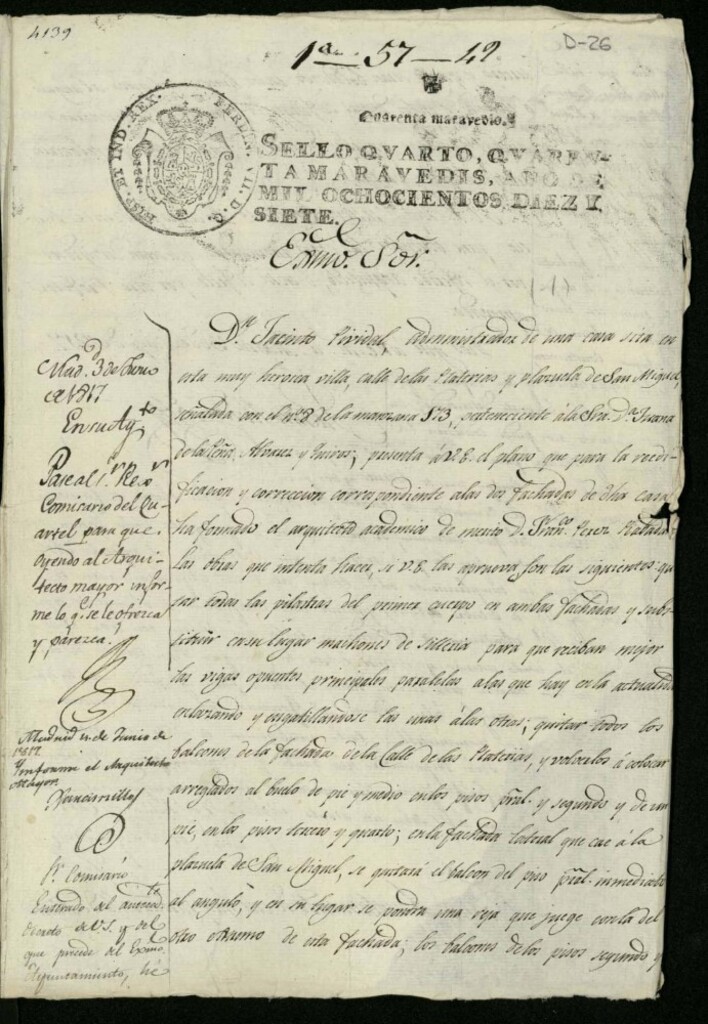 4139
1ª 57-42
D-26
Quarenta maravedis.
HISP. ET IND. REX. FERDIN. VII. D. G.
SELLO QVARTO, QVAREN-
TA MARAVEDIS, AÑO DE
MIL OCHOCIENTOS DIEZ Y
SIETE.
Exmo. Sor.
Dn. Jacinto Pividal, administrador de una casa sita en
esta muy heroica villa, calle de las Platerias y plazuela de San Miguel,
señalada con el nº 8 de la manzana 173, perteneciente á la Sra. Dª Juana
de la Peña, Alvarez y Quiros; presenta á V.E. el plano que para la reedi-
ficacion y correccion correspondiente a las dos fachadas de dha casa
ha formado el arquitecto academico de merito D. Franco. Perez
las obras que intenta hacer, si V.E. las aprueva son las siguientes: qui-
tar todas las pilastras del primer cuerpo en ambas fachadas y subs-
tituir en su lugar machones de silleria para que reciban mejor
las vigas opuentes principales paralelas a las que hay en la actualidad
enlazando y engatillandose las unas á las otras; quitar todos los
balcones de la fachada de la Calle de las Platerias, y volverlos á colocar
arreglados al buelo de pie y medio en los pisos pral. y segundo y de un
pie, en los pisos tercero y quarto; en la fachada lateral que cae á la
plazuela de San Miguel, se quitará el balcon del piso pral. inmediato
al angulo, y en su lugar se pondra una reja que juege con la del
otro extremo de esta fachada; los balcones de los pisos segundo y
Madd. 3 de Junio
de 1817
En su Aymto
Pase al Sr. Rexr
Comisario del Qu-
artel para que
oyendo al Arqui-
tecto mayor infor-
me lo q. se le ofrezca
y parezca.
Madrid 4 de Junio de
1817
Ynforme el Arquitecto
Mayor.
Sr. Comisario
Enterado del antece-
dente de V.S. y del
que precede del Exmo.
Ayuntamiento, he